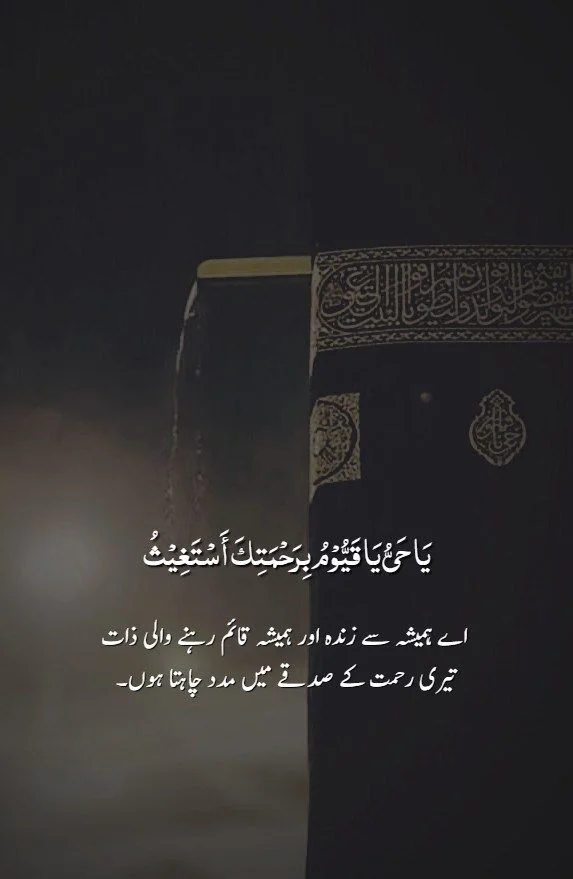 يَا حَىُّ يَا قَيُّوْمُ بِرَحْمَتِكَ أَسْتَغِيْثُ
اے ہمیشہ سے زندہ اور ہمیشہ قائم رہنے والی ذات
تیری رحمت کے صدقے میں مدد چاہتا ہوں۔